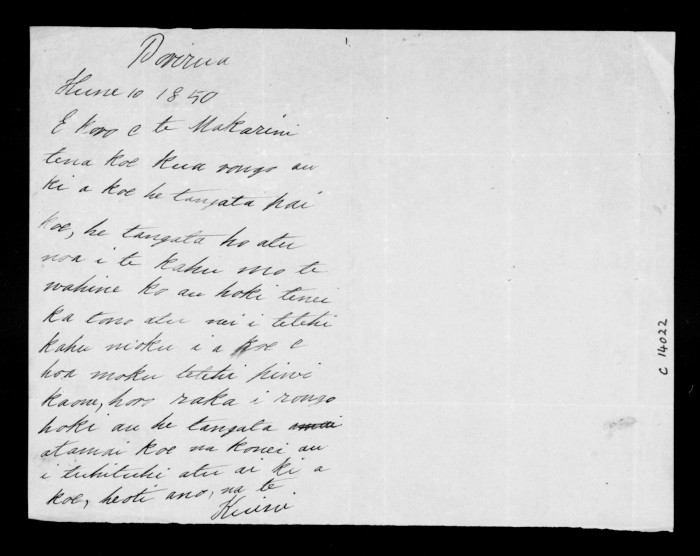 Porirua
Hune 10 1850
E koro e te Makarini
tena koe kua rongo au
ki a koe he tangata pai
koe, he tangata ho atu
noa i te kahu mo te
wahine ko au hoki tenei
ka tono atu nei i tetehi
kahu moku i a koe e
hoa moku tetehi piwi
kaone, horo raka i rongo
hoki au he tangata
atamai koe na konei au
i tuhituhi atu ai ki a
koe, heoti ano, na te
Kuini
C 14022